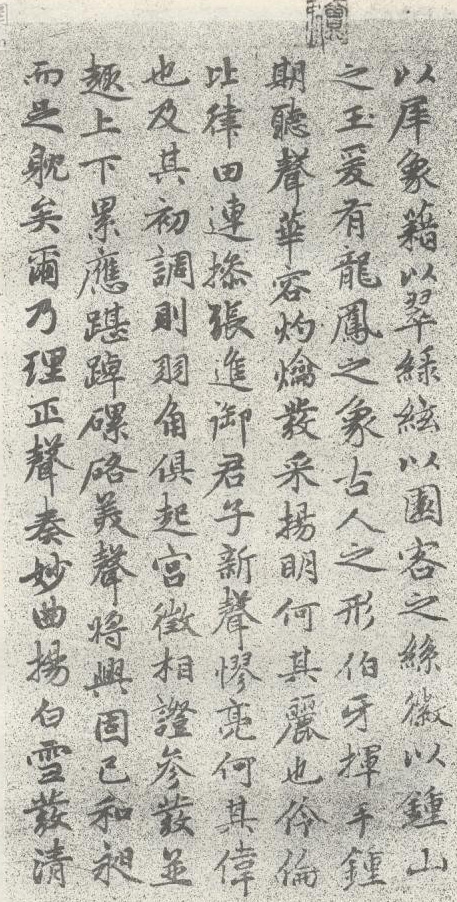 以犀象藉以翠緑絃以園客之絲徽以鍾山
之玉爰有龍鳳之象古人之形伯牙揮手鍾
期聽聲華容灼爚發采揚明何其麗也伶倫
比律田連摻張進御君子新聲憀亮何其偉
也及其初調則羽角俱起宮徵相證參發並
趣上下累應踸踔磥硌美聲將興固已和昶
而足躭矣爾乃理正聲奏妙曲揚白雪發清